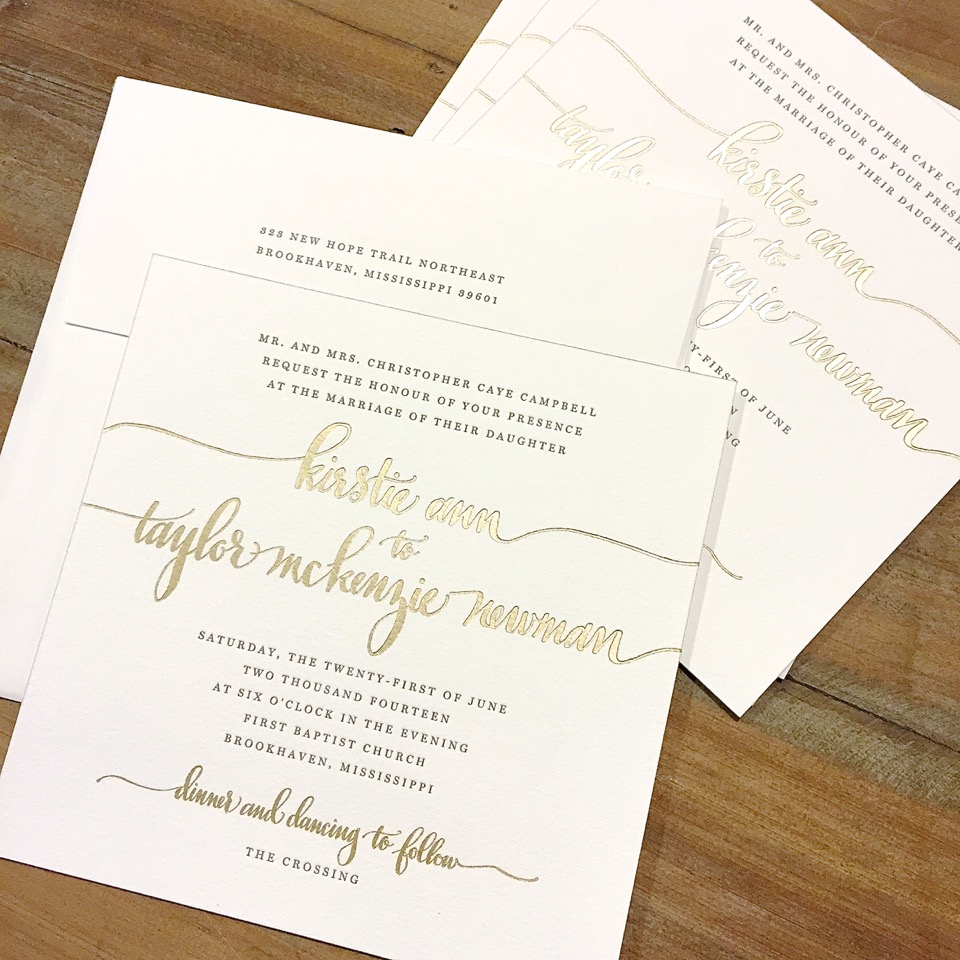 323 NEW HOPE TRAIL NORTHEAST
BROOKHAVEN, MISSISSIPPI 39601
MR. AND MRS. CHRISTOPHER CAYE CAMPBELL
REQUEST THE HONOUR OF YOUR PRESENCE
AT THE MARRIAGE OF THEIR DAUGHTER
kirstie ann
to
taylor mckenzie newman
SATURDAY, THE TWENTY-FIRST OF JUNE
TWO THOUSAND FOURTEEN
AT SIX O'CLOCK IN THE EVENING
FIRST BAPTIST CHURCH
BROOKHAVEN, MISSISSIPPI
dinner and dancing to follow
THE CROSSING
MR. AND MRS. CHRISTOPHER CAYE
REQUEST THE HONOUR OF YOUR PRESENCE
AT THE MARRIAGE OF THEIR DAUGHTER
kirstie ann
to
newman
OF JUNE
taylor